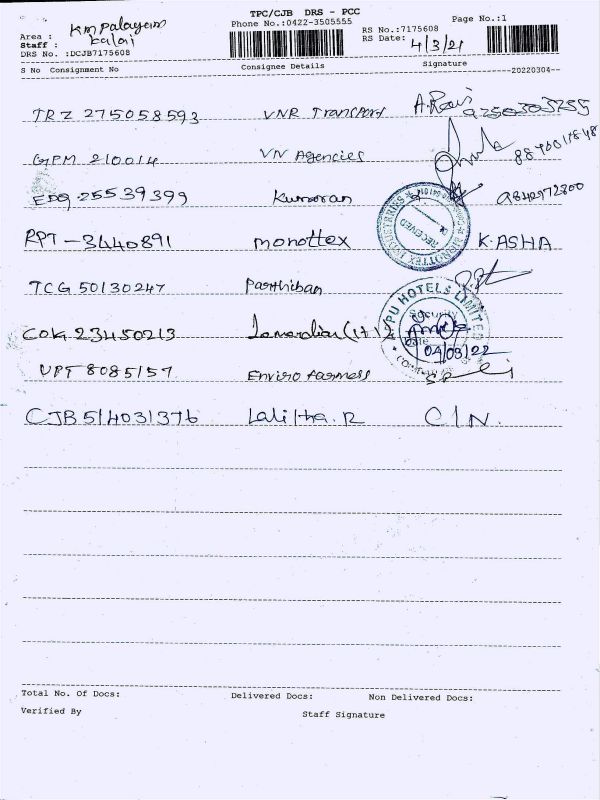 TPC/CJB DRS - PCC
Phone No.:0422-3505555
Page No.:1
Area : KM Palayam
Staff : Kalai
RS No.:7175608
RS Date: 4/3/21
DRS No. :DCJB7175608
S No Consignment No Consignee Details Signature
20220304
TRZ 275058593 VNR Transport A.Ravi 9250303255
GPM 210014 VN Agencies
EDQ 25539399 Kumaran 9842972800
RPT-3440891 monottex K.ASHA
RECEIVED
TCG 50130247 Parthiban
PU HOTELS LIMITED
Security
COK 23450213
Date 04/03/22
UPT 8085157 Enviro farmess
CJB514031376 Lalitha.R C/N.
Total No. Of Docs: Delivered Docs: Non Delivered Docs:
Verified By Staff Signature